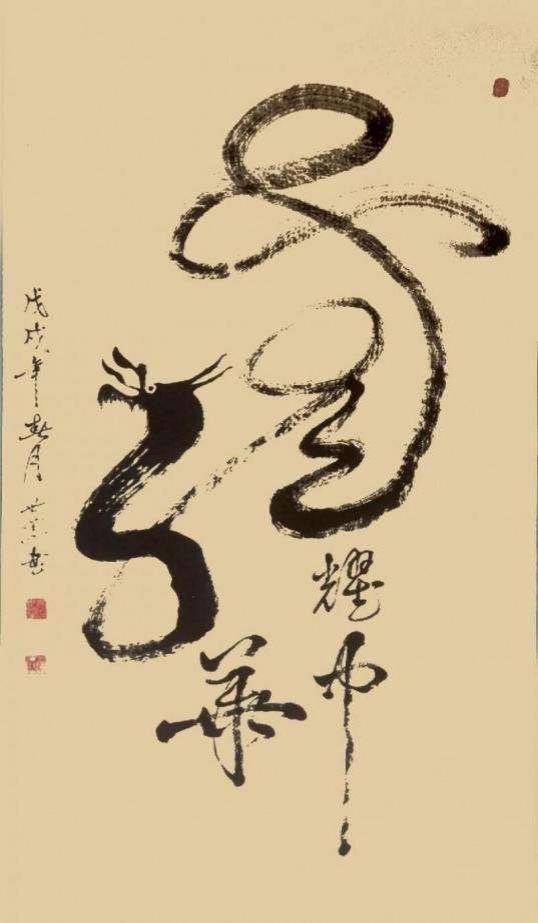 龍
耀中
華
戊戌年春月 世 書